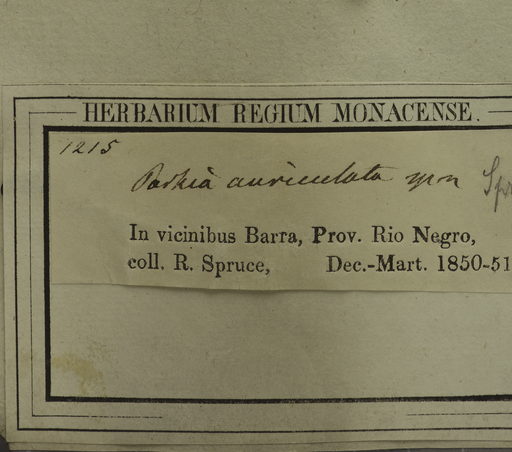 HERBARIUM REGIUM MONACENSE.
1215
Parkia auriculata
In vicinibus Barra, Prov. Rio Negro,
coll. R. Spruce, Dec.-Mart. 1850-51